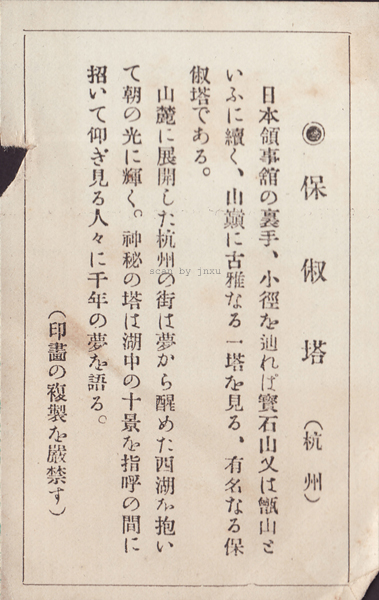 ◉保俶塔（杭州）
日本領事館の裏手、小徑を辿れば寶石山又は甑山と
いふに續く、山巓に古雅なる一塔を見る、有名なる保
俶塔である。
山麓に展開した杭州の街は夢から醒めた西湖を抱い
て朝の光に輝く。神秘の塔は湖中の十景を指呼の間に
招いて仰ぎ見る人々に千年の夢を語る。
（印畫の複製を嚴禁す）
scan by jnxu